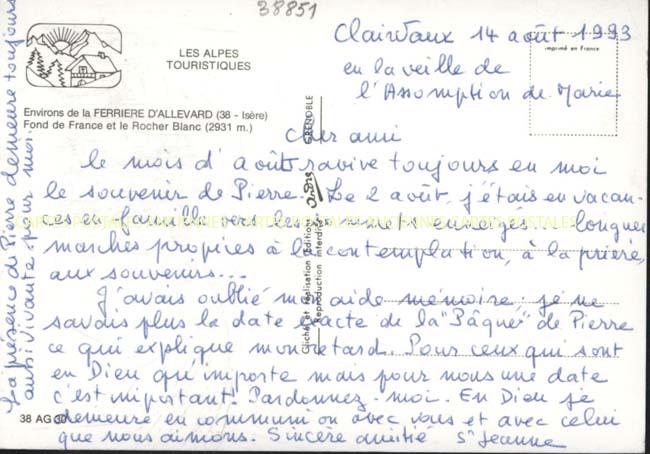 38851
LES ALPES
TOURISTIQUES
Environs de la FERRIERE D'ALLEVARD (38 - Isère)
Fond de France et le Rocher Blanc (2931 m.)
imprimé en France
Clairvaux 14 août 1993
en la veille de
l'Assomption de Marie
Cher ami
le mois d'août ravive toujours en moi
le souvenir de Pierre. Le 2 août, j'étais en vacan-
ces en famille vers les sommets enneigés... longues
marches propices à la contemplation, à la prière,
aux souvenirs...
J'avais oublié mon aide mémoire, je ne
savais plus la date exacte de la "Pâque" de Pierre
ce qui explique mon retard. Pour ceux qui sont
en Dieu qu'importe mais pour nous une date
c'est important! Pardonnez-moi. En Dieu je
demeure en communion avec vous et avec celui
que nous aimons. Sincère amitié Sr Jeanne
La présence de Pierre demeure toujours
aussi vivante pour moi.
38 AG 30
GRENOBLE
André
Cliché et réalisation Editions
Reproduction interdite